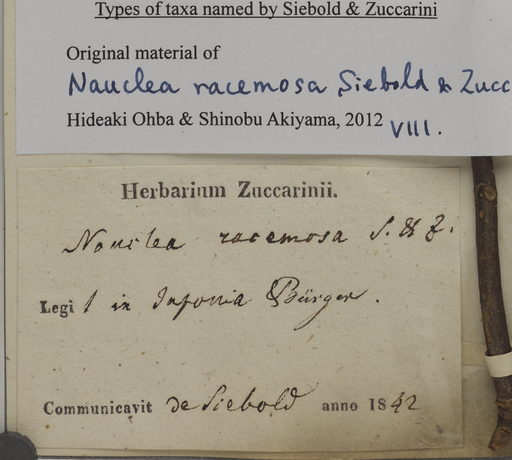 Types of taxa named by Siebold & Zuccarini
Original material of
Nauclea racemosa Siebold & Zucc
Hideaki Ohba & Shinobu Akiyama, 2012 VIII.
Herbarium Zuccarinii.
Nauclea racemosa S. & Z.
Legit in Japonia Bürger.
Communicavit de Siebold anno 1842